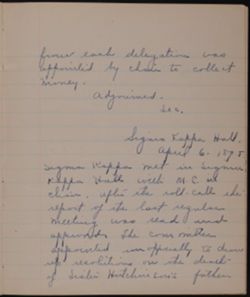 from each delegation was
appointed by chair to collect
money.
Adjourned.
Sec.
Sigma Kappa Hall.
April 6, 1895
Sigma Kappa met in Sigma
Kappa Hall with M.C. in
chair. After the roll-call the
report of the last regular
meeting was read and
approved. The committee
appointed to draw
up resolutions on the death
of Hutchinson's father